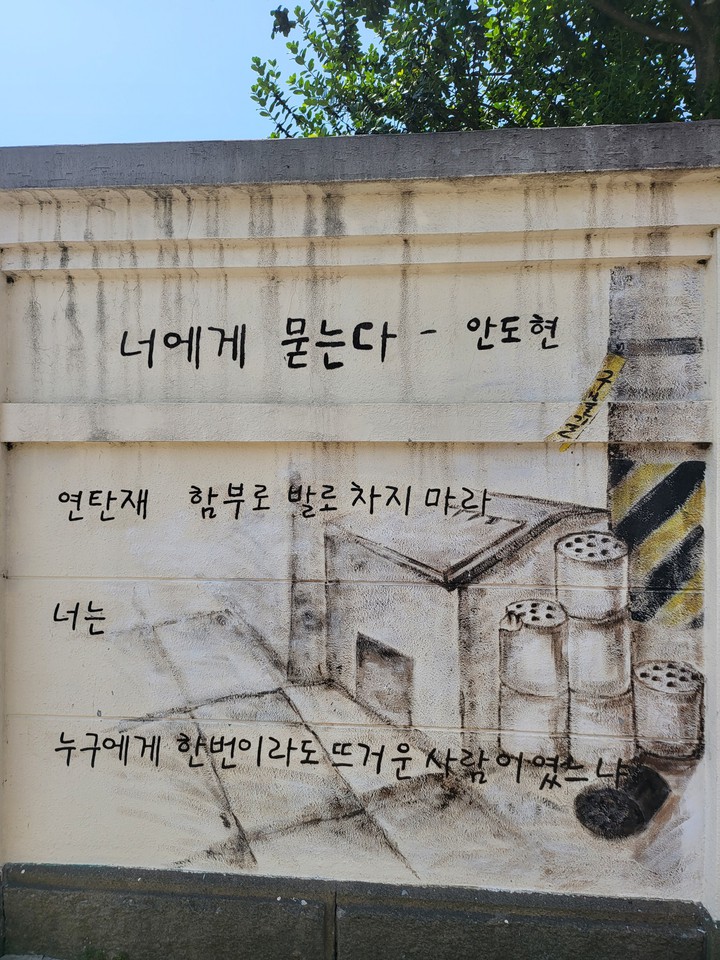 너에게 묻는다 - 안도현
연탄재 함부로 발로 차지 마라
너는
누구에게 한번이라도 뜨거운 사람이였느냐